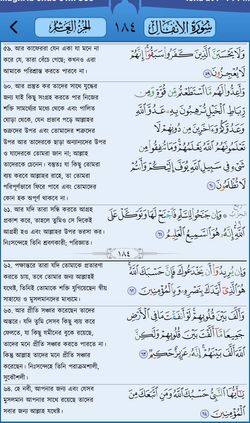 سورة الانفال
١٨٤
الجزء العاشر
৫৯. আর কাফেররা যেন এবা যা মনে না
করে যে, তারা বেঁচে গেছে; কখনও এরা
আমাকে পরিশ্রান্ত করতে পারবে না।
وَلَا يَحْسَبَنَّ الَّذِينَ كَفَرُوا سَبَقُوا إِنَّهُمْ
لَا يُعْجِزُونَ ٥٩
৬০. আর প্রস্তুত কর তাদের সাথে যুদ্ধের
জন্য যাই কিছু সংগ্রহ করতে পার নিজের
শক্তি সামর্থ্যের মধ্যে থেকে এবং পালিত
ঘোড়া থেকে, যেন প্রভাব পড়ে আল্লাহর
শুত্রুদের উপর এবং তোমাদের শত্রুদের
উপর আর তাদেরকে ছাড়া অন্যান্যদের উপর
ও যাদেরকে তোমরা জান না; আল্লাহ
তাদেরকে চেনেন। বস্তুতঃ যা কিছু তোমরা
ব্যয় করবে আল্লাহর রাহে, তা তোমরা
পরিপূর্ণভাবে ফিরে পাবে এবং তোমাদের
কোন হক অপূর্ণ থাকবে না।
وَأَعِدُّوا لَهُم مَّا اسْتَطَعْتُم مِّن قُوَّةٍ وَمِن
رِّبَاطِ الْخَيْلِ تُرْهِبُونَ بِهِ عَدُوَّ اللَّهِ
وَعَدُوَّكُمْ وَآخَرِينَ مِن دُونِهِمْ لَا
تَعْلَمُونَهُمُ اللَّهُ يَعْلَمُهُمْ وَمَا تُنفِقُوا مِن
شَيْءٍ فِي سَبِيلِ اللَّهِ يُوَفَّ إِلَيْكُمْ وَأَنتُمْ
لَا تُظْلَمُونَ ٦٠
৬১. আর যদি তারা সন্ধি করতে আগ্রহ
প্রকাশ করে, তাহলে তুমিও সে দিকেই
আগ্রহী হও এবং আল্লাহর উপর ভরসা কর।
নিঃসন্দেহে তিনি শ্রবণকারী; পরিজ্ঞাত।
وَإِن جَنَحُوا لِلسَّلْمِ فَاجْنَحْ لَهَا وَتَوَكَّلْ عَلَى
اللَّهِ إِنَّهُ هُوَ السَّمِيعُ الْعَلِيمُ ٦١
١٨٤
৬২. পক্ষান্তরে তারা যদি তোমাকে প্রতারণা
করতে চায়, তবে তোমার জন্য আল্লাহই
যথেষ্ট, তিনিই তোমাকে শক্তি যুগিয়েছেন স্বীয়
সাহায্যে ও মুসলমানদের মাধ্যমে।
وَإِن يُرِيدُوا أَن يَخْدَعُوكَ فَإِنَّ حَسْبَكَ اللَّهُ
هُوَ الَّذِي أَيَّدَكَ بِنَصْرِهِ وَبِالْمُؤْمِنِينَ ٦٢
৬৩. আর প্রীতি সঞ্চার করেছেন তাদের
অন্তরে। যদি তুমি সেসব কিছু ব্যয় করে
ফেলতে, যা কিছু যমীনের বুকে রয়েছে,
তাদের মনে প্রীতি সঞ্চার করতে পারতে না।
কিন্তু আল্লাহ তাদের মনে প্রীতি সঞ্চার
করেছেন। নিঃসন্দেহে তিনি পরাক্রমশালী,
সুকৌশলী।
وَأَلَّفَ بَيْنَ قُلُوبِهِمْ لَوْ أَنفَقْتَ مَا فِي الْأَرْضِ
جَمِيعًا مَّا أَلَّفْتَ بَيْنَ قُلُوبِهِمْ وَلَٰكِنَّ
اللَّهَ أَلَّفَ بَيْنَهُمْ إِنَّهُ عَزِيزٌ حَكِيمٌ ٦٣
৬৪. হে নবী, আপনার জন্য এবং যেসব
মুসলমান আপনার সাথে রয়েছে তাদের
সবার জন্য আল্লাহ যথেষ্ট।
يَا أَيُّهَا النَّبِيُّ حَسْبُكَ اللَّهُ وَمَنِ اتَّبَعَكَ مِنَ
الْمُؤْمِنِينَ ٦٤